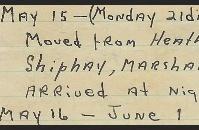 MAY 15 – (MONDAY 21di
MOVED FROM HEATH
SHIPHAY, MARSHA
ARRIVED AT NIG
MAY 16 – JUNE 1